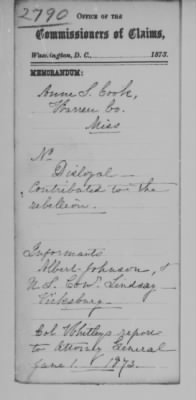 2790
OFFICE OF THE
Commissioners of Claims,
WASHINGTON, D. C., 1873.
MEMORANDUM:
Anne S. Cook,
Warren Co.
Miss
No
Disloyal —
Contributed to the
rebellion.
Informants
Albert Johnson, &
U.S. Com. Lindsay
Vicksburg
Col Whitley's report
to Attorney General
June 1. 1873.